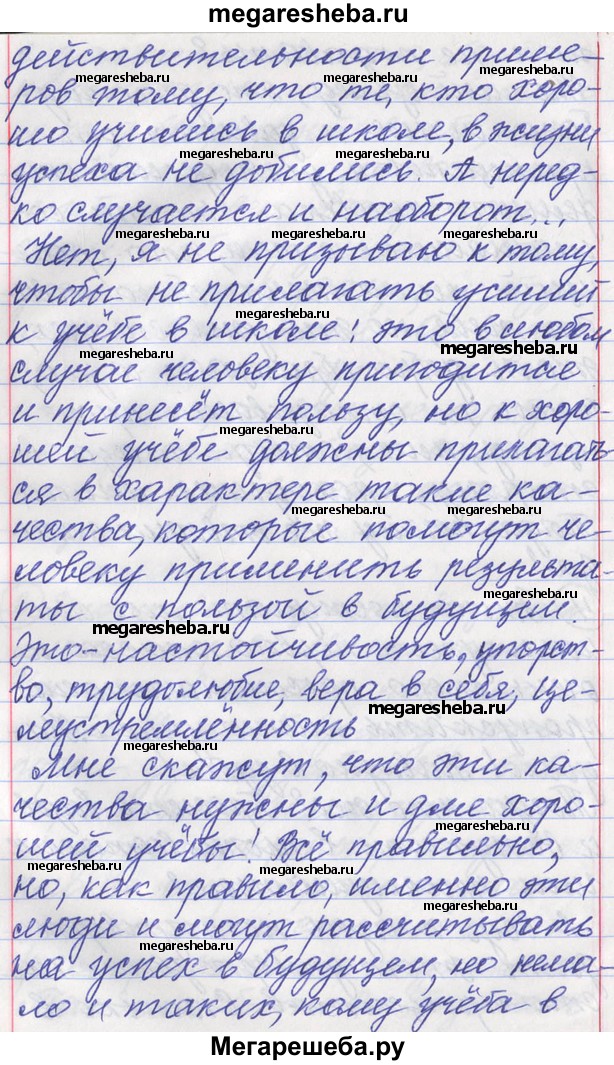 megaresheba.ru
действительности приме-
ров тому, что те, кто хоро-
шо учились в школе, в жизни
успеха не добились. А неред-
ко случается и наоборот...
Нет, я не призываю к тому,
чтобы не прилагать усилий
к учёбе в школе: это в любом
случае человеку пригодится
и принесёт пользу, но к хоро-
шей учёбе должны прилагать-
ся в характере такие ка-
чества, которые помогут че-
ловеку применить результа-
ты с пользой в будущем.
Это-настойчивость, упорст-
во, трудолюбие, вера в себя, це-
леустремлённость
Мне скажут, что эти ка-
чества нужны и для хоро-
шей учёбы! Всё правильно,
но, как правило, именно эти
люди и могут рассчитывать
на успех в будущем, но нема-
ло и таких, кому учёба в
Мегарешеба.ру